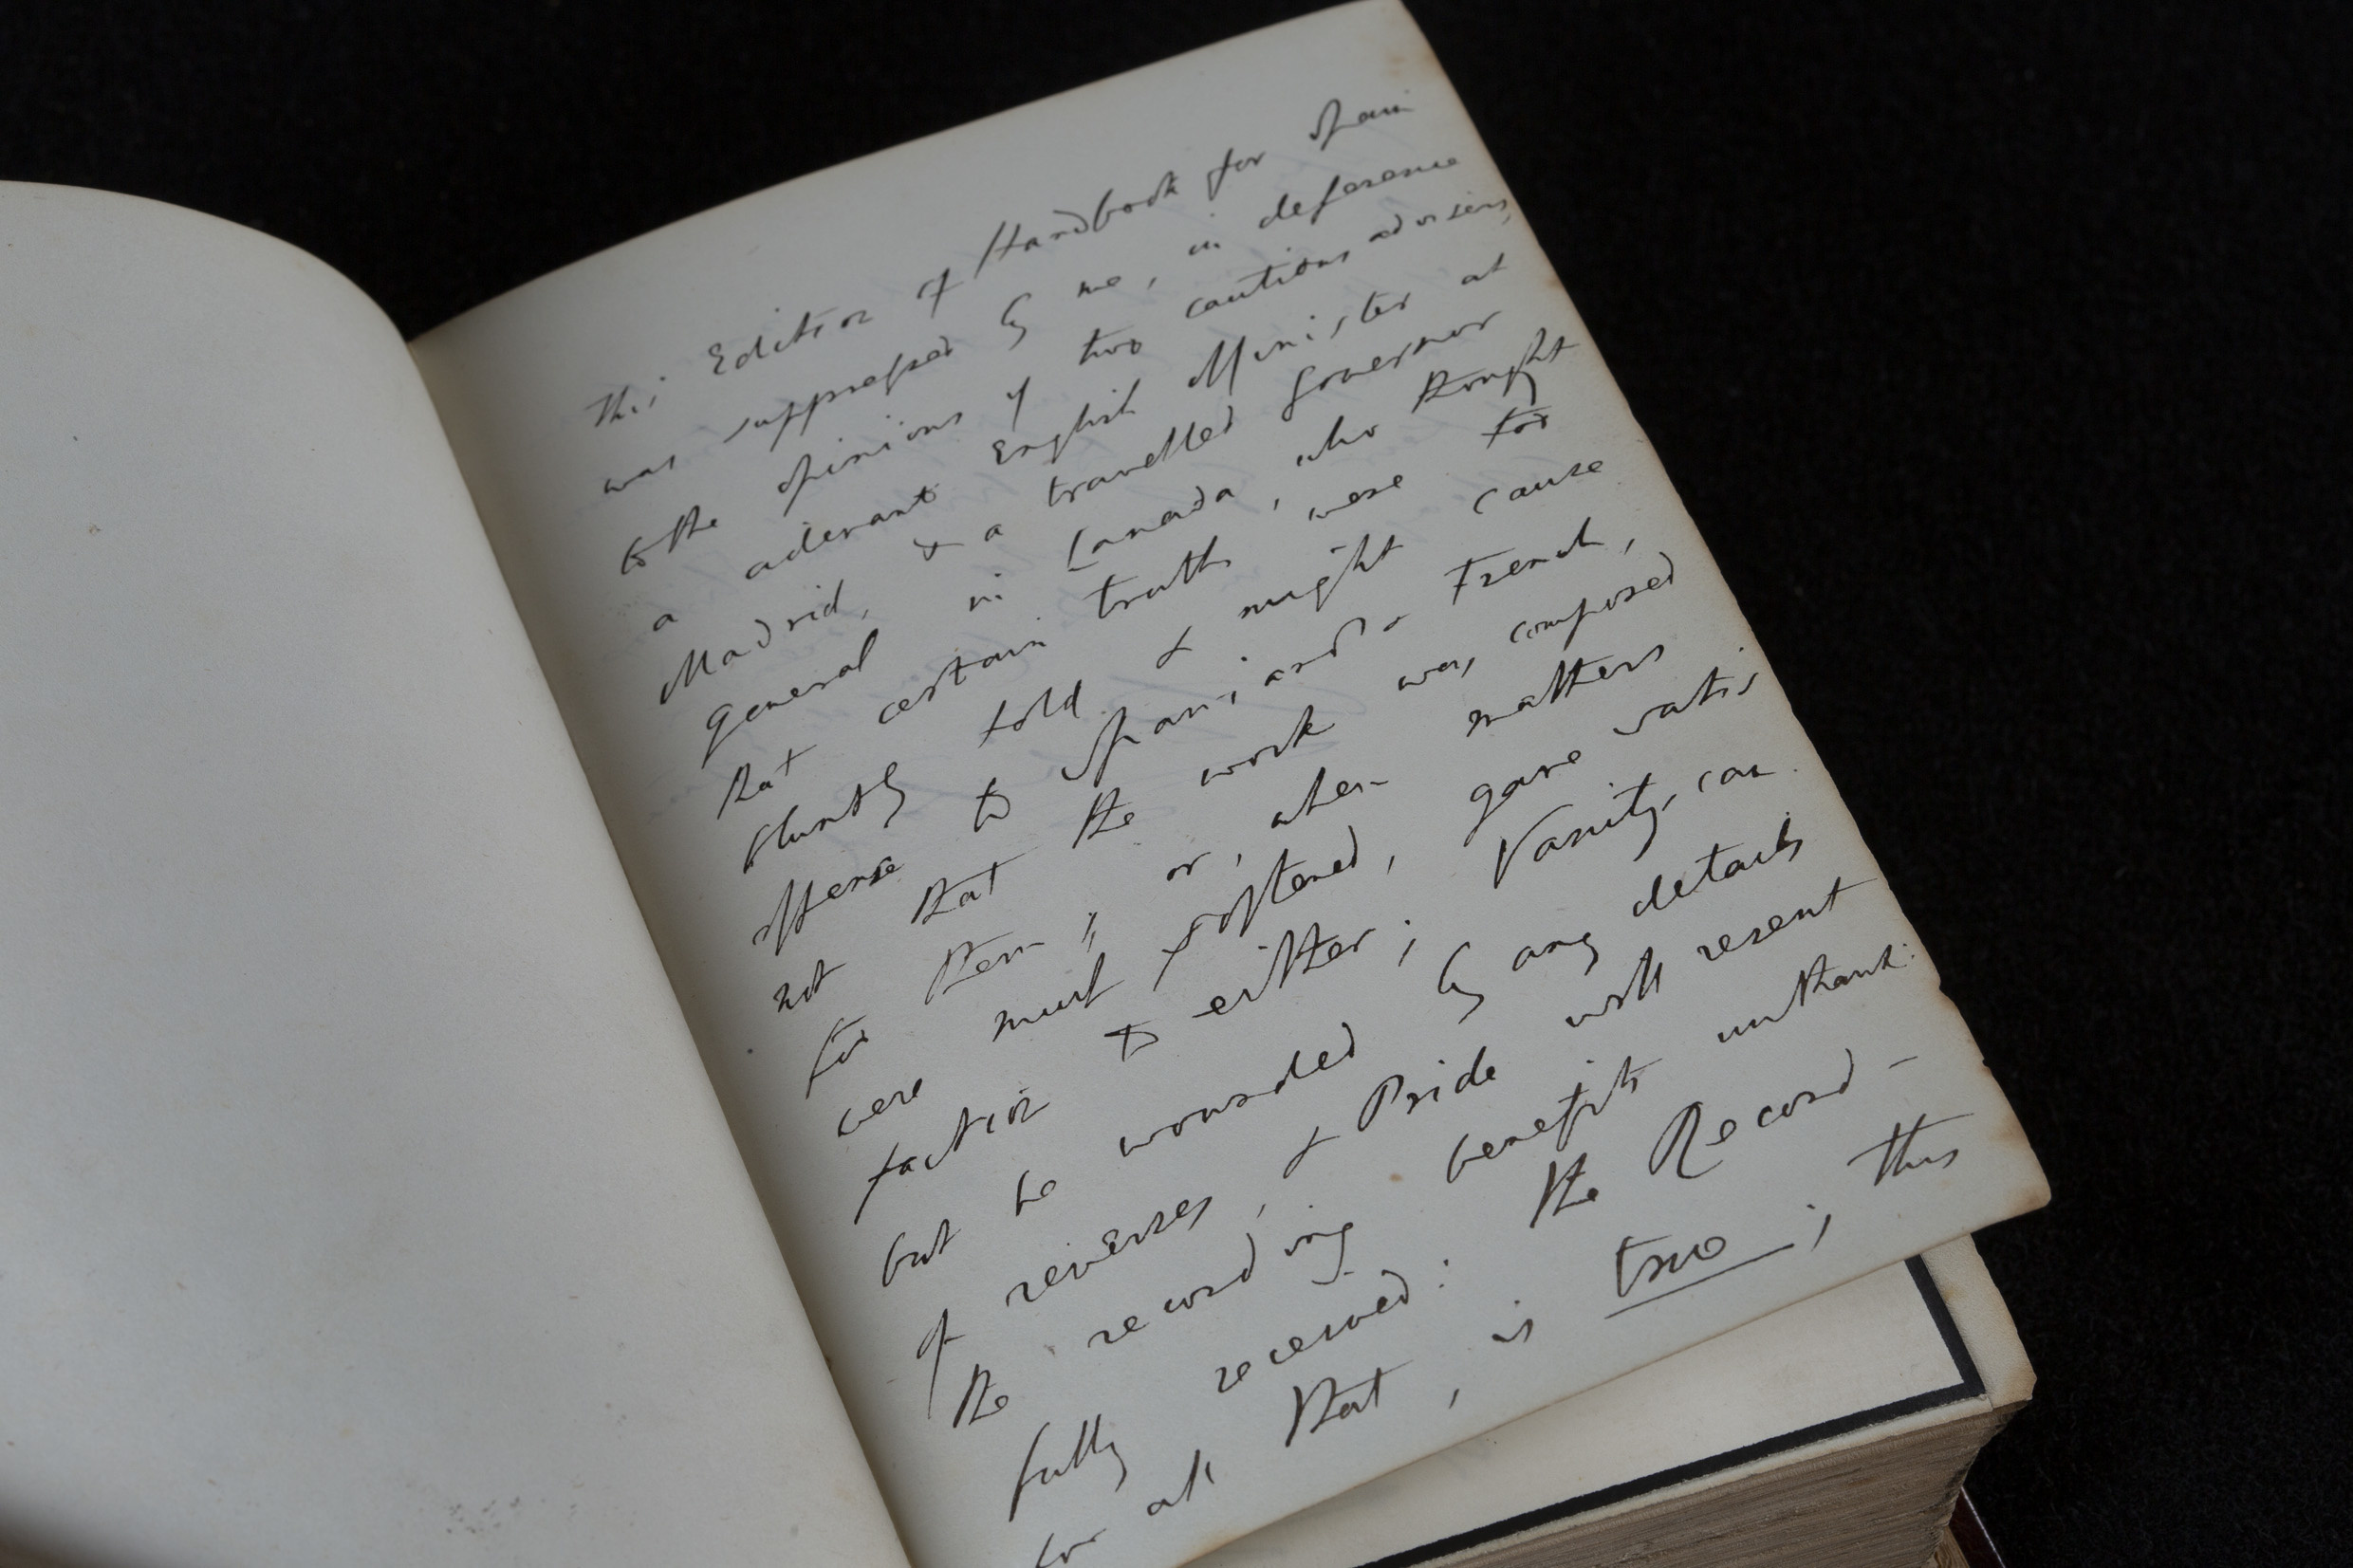 This Edition of Handbook for Spain
was suppressed by me, in deference
to the opinions of two cautious advisers,
a cidevant English Minister at
Madrid, & a travelled Governor
general in Canada, who thought
that certain truths were too
bluntly told & might cause
offense to Spaniard or French,
not that the work was composed
for them; or, when matters
were much softened, gave satis
faction to either; Vanity, can
but be wounded by any details
of reverses, & Pride will resent
the recording benefits unthank:
fully received: the Record –
for all that, is true; this